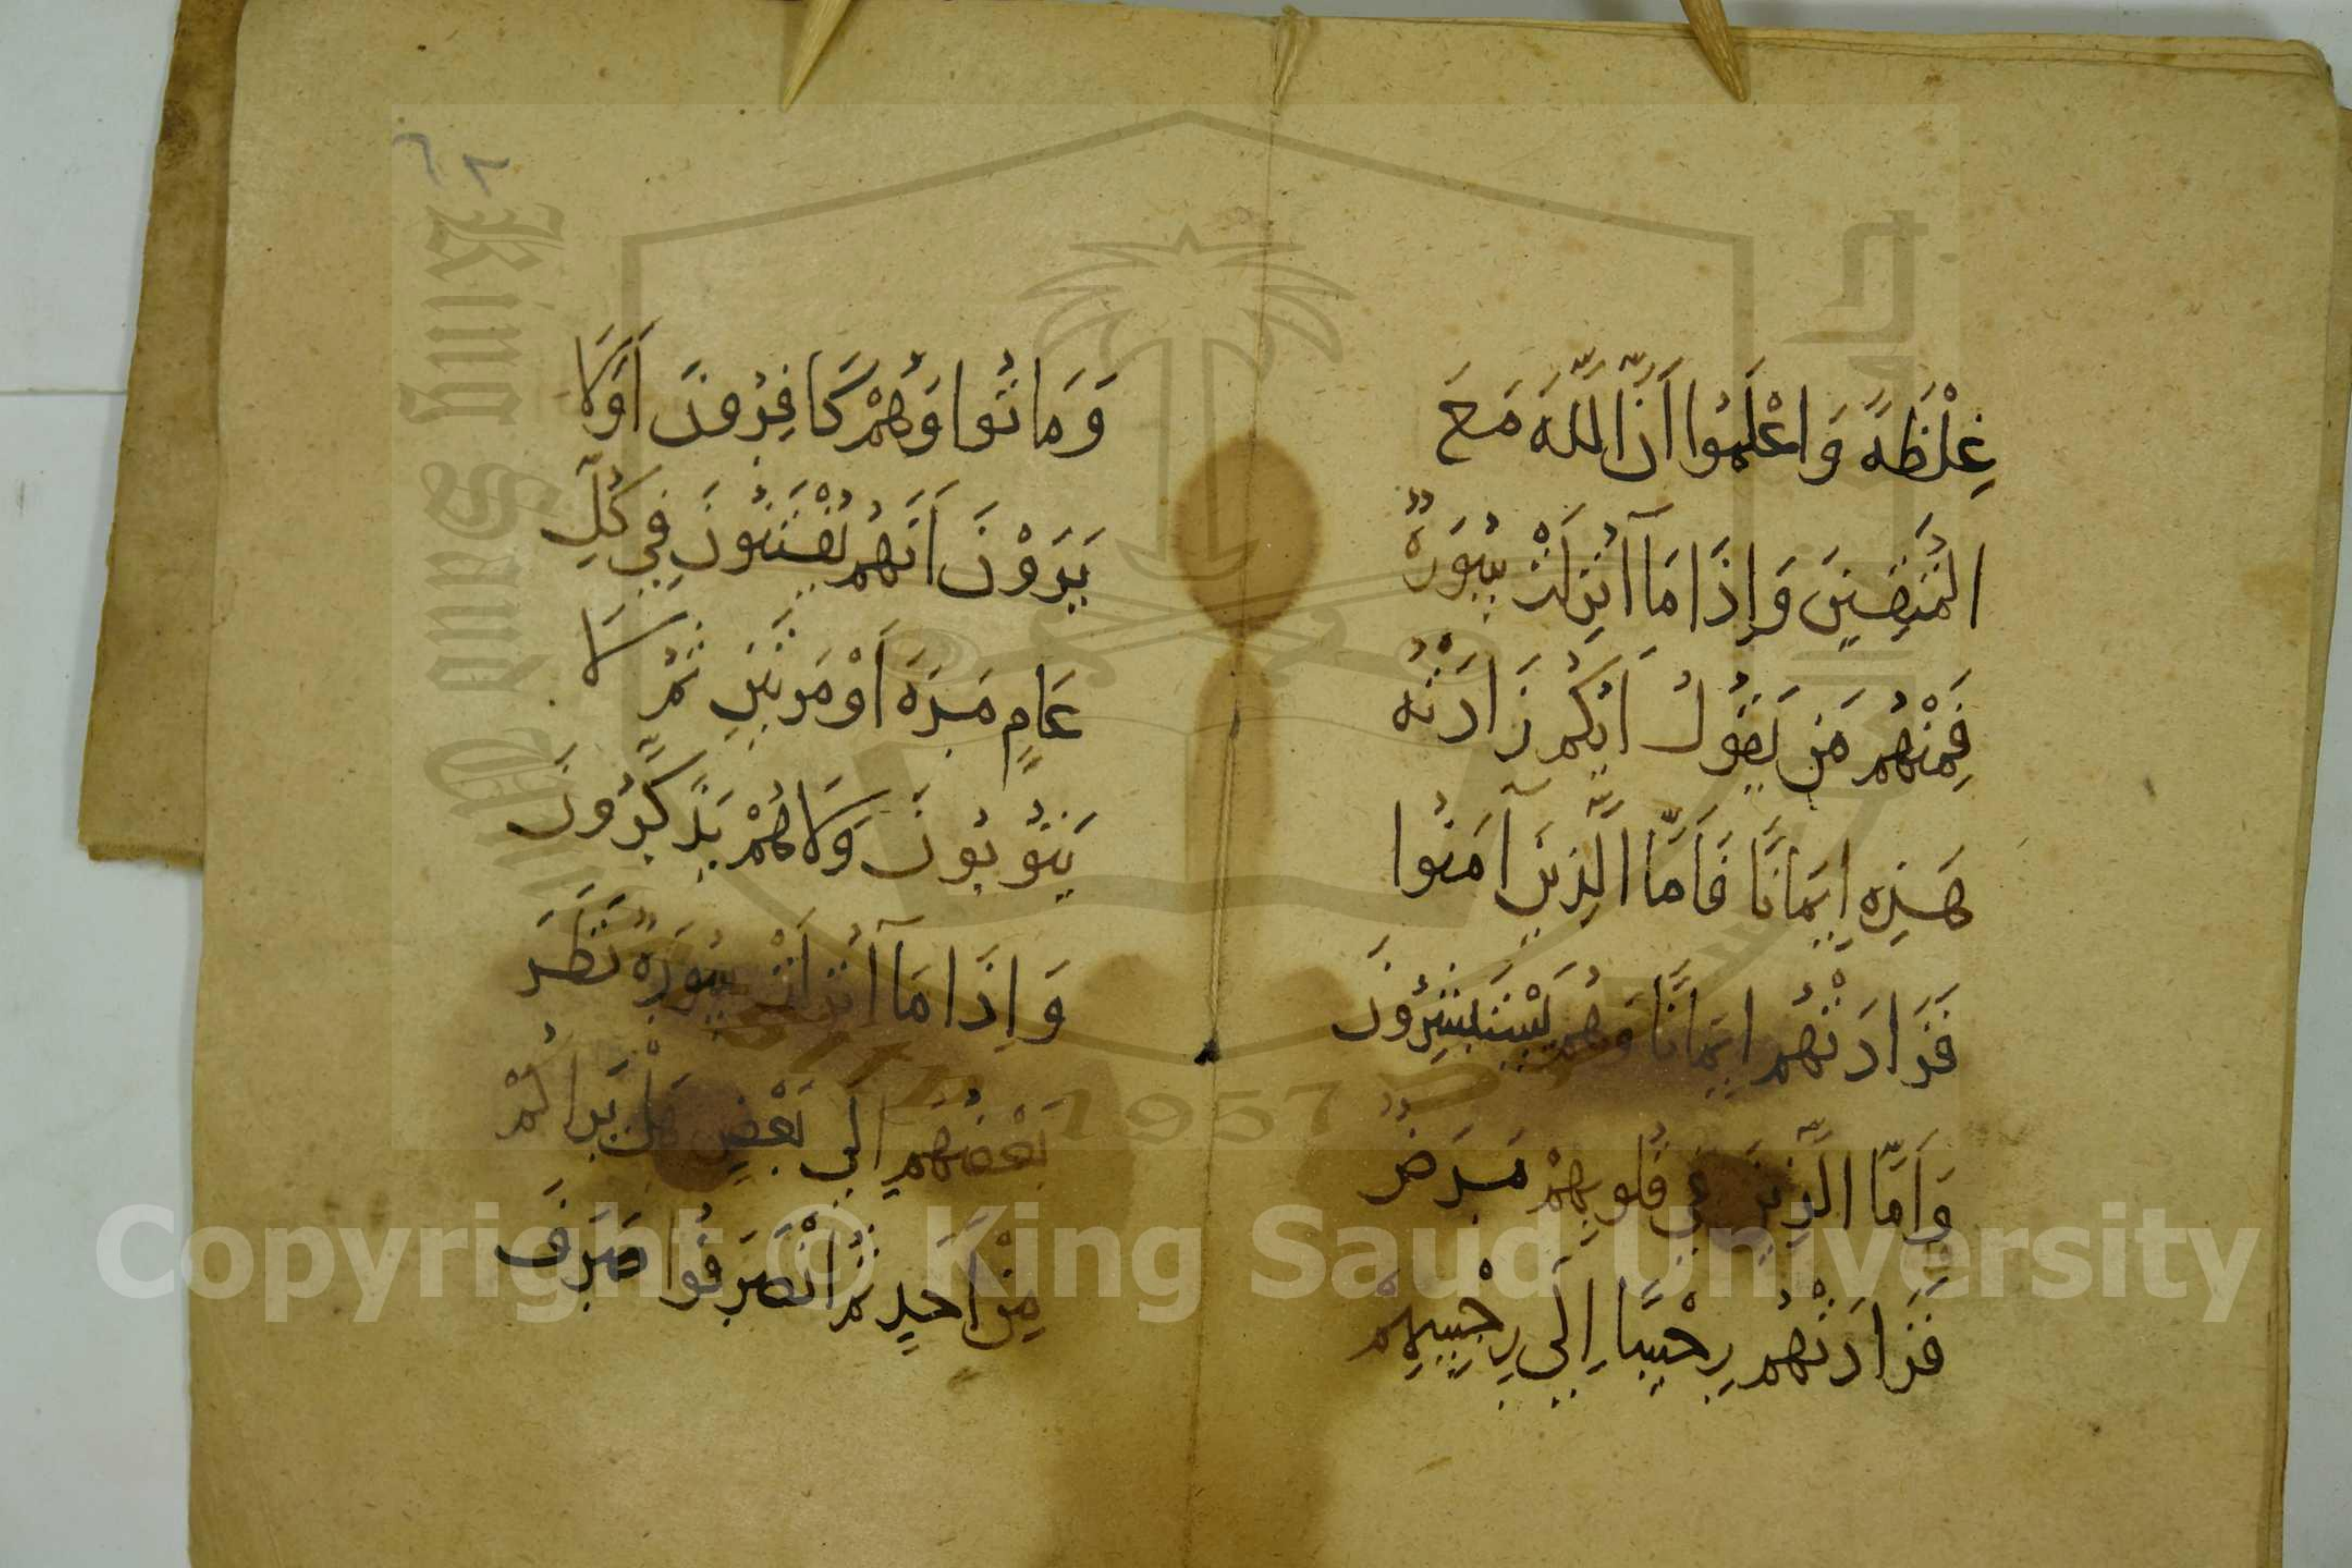 غِلْظَةً وَاعْلَمُوا أَنَّ اللَّهَ مَعَ
الْمُتَّقِينَ وَإِذَا مَآ أُنْزِلَتْ سُورَةٌ
فَمِنْهُم مَن يَقُولُ أَيُّكُمْ زَادَتْهُ
هَذِهِ إِيمَانًا فَأَمَّا الَّذِينَ آمَنُوا
فَزَادَتْهُمْ إِيمَانًا وَهُمْ يَسْتَبْشِرُونَ
وَأَمَّا الَّذِينَ فِي قُلُوبِهِمْ مَرَضٌ
فَزَادَتْهُمْ رِجْسًا إِلَى رِجْسِهِمْ
٦٢
وَمَاتُوا وَهُمْ كَافِرُونَ أَوَلَا
يَرَوْنَ أَنَّهُمْ يُفْتَنُونَ فِي كُلِّ
عَامٍ مَرَّةً أَوْ مَرَّتَيْنِ ثُمَّ لَا
يَتُوبُونَ وَلَا هُمْ يَذَّكَّرُونَ
وَإِذَا مَآ أُنْزِلَتْ سُورَةٌ نَظَرَ
بَعْضُهُمْ إِلَى بَعْضٍ هَلْ يَرَاكُمْ
مِنْ أَحَدٍ ثُمَّ انْصَرَفُوا صَرَفَ
King Saud University
1957
Copyright © King Saud University